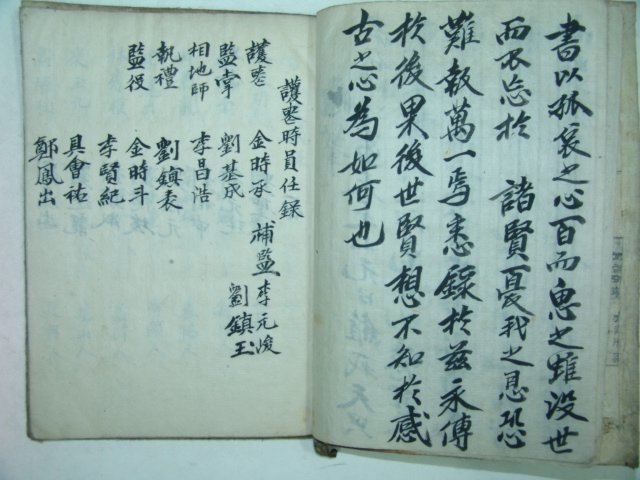 書以孤哀之心百而思之雖没世
而不忘於 諸賢憂我之恩恐
難報萬一焉悉錄於玆永傳
於後果後世賢想不知於感
古之心為如何也
護喪時員任錄
護喪 金時承 補監 李元浚
監掌 劉基成 劉鎮玉
相地師 李昌浩
執禮 劉鎮表
監役 金時斗
李賢紀
具會祐
鄭鳳出